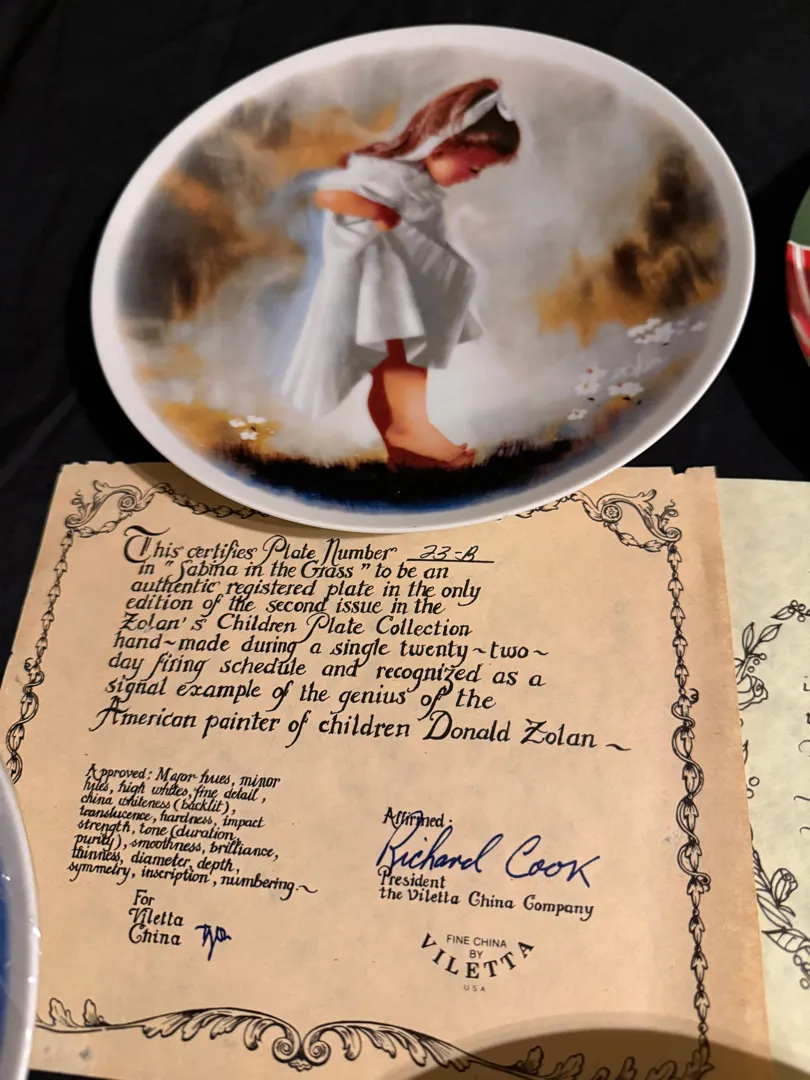 This certifies Plate Number 23-B
in "Sabina in the Grass" to be an
authentic registered plate in the only
edition of the second issue in the
Zolan's Children Plate Collection
hand~made during a single twenty~two~
day firing schedule and recognized as a
signal example of the genius of the
American painter of children Donald Zolan~
Approved: Major hues, minor
hues, high whites, fine detail,
china whiteness (backlit),
translucence, hardness, impact
strength, tone (duration,
purity), smoothness, brilliance,
thinness, diameter, depth,
symmetry, inscription, numbering.~
For
Viletta
China
Affirmed:
Richard Cook
President
the Viletta China Company
FINE CHINA
BY
VILETTA
USA